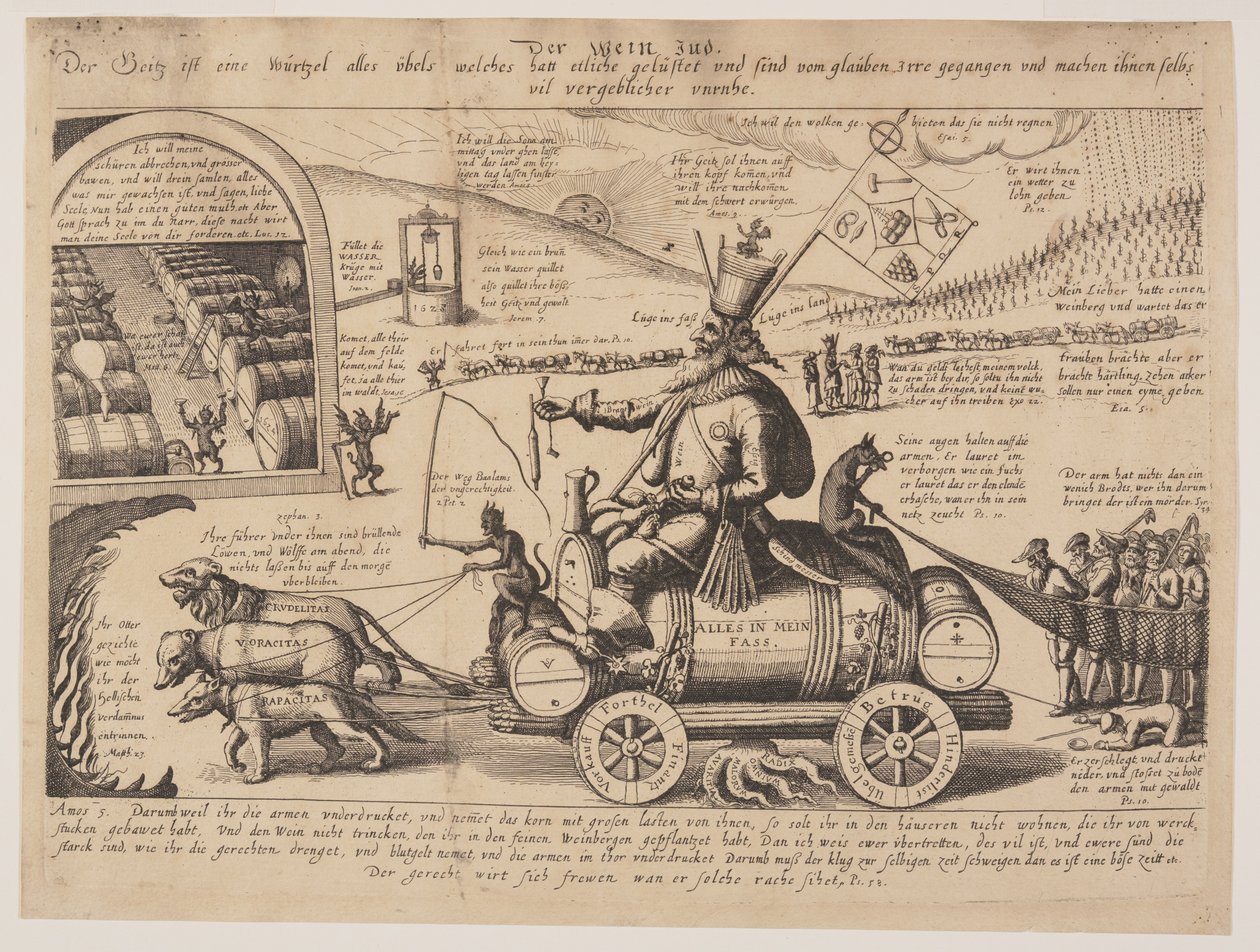 Der Wein Jud.
Der Geitz ist eine Würtzel alles übels welches hatt etliche gelüstet vnd sind vom glauben Irre gegangen vnd machen ihnen selbs
vil vergeblicher vnruhe.
Ich will meine
schüren abbrechen, vnd grosser
bawen, vnd will drein samlen, alles
was mir gewachsen ist, vnd sagen, liebe
Seele, Nun hab einen guten muth, etc Aber
Gott sprach zu im du Narr, diese nacht wirt
man deine Seele von dir forderen. etc. Luc. 12.
Wo ewer schatz
ist da ist auch
Mat. 6.
Füllet die
WASSER
Krüge mit
Wasser.
Joan. 2.
1628
Ich will die Sonn am
mittag vnder ghen lasse,
vnd das land am hey-
ligen tag lassen finster
werden Amos.
Gleich wie ein brun
sein Wasser quillet
also quillet ihre boß-
heit Geitz vnd gewalt
Jerem. 7.
Ihr Geitz sol ihnen auff
ihren kopf komen, vnd
will ihre nachkomen
mit dem schwert erwürgen,
Amos. 9.
Ich wil den wolken ge-
bieten das sie nicht regnen
Esai. 5.
Er wirt ihnen
ein wetter zu
lohn geben
Ps. 12.
SPORO
Luge ins faß
Luge ins lan
Mein Lieber hatte einen
Weinberg vnd wartet das er
trauben brächte aber er
brachte härtling. Zehen acker
sollen nur einen eyme geben
Esa. 5.
Komet, alle thier
auf dem felde
komet, vnd
fet, ja alle thier
im waldt,
Er fahret fort in sein thun imer dar. Ps. 10.
Wan du geldt leihest meinem volck,
das arm ist bey dir, so soltu ihn nicht
zu schaden dringen, vnd keine wu-
cher auf ihn treiben Exo 22.
Brant Wein
Wein
Der Weg Baalams
der vngerechtigkeit.
2 Pet. 2.
Seine augen halten auff die
armen. Er lauret im
verborgen wie ein fuchs
er lauret das er den elende
erhasche, wan er ihn in sein
netz zeucht Ps. 10.
Der arm hat nichts dan ein
wenich Brodts, wer ihn darum
bringet der ist ein mörder. Syr.
zephan. 3.
Ihre führer vnder ihnen sind brüllende
Löwen, vnd Wölffe am abend, die
nichts laßen bis auff den morge
vberbleiben.
CRVDELITAS
VORACITAS
RAPACITAS
Schindmesser
ALLES IN MEIN
FASS.
Ihr Otter
gezichte
wie möcht
ihr der
hellischen
verdamnus
entrinnen.
Matth. 23
Vorkauff Forthel Finantz
Vbelgemeße Betrug Hinderlist
RADIX
OMNIUM
MALORUM
AVARITIA
Er zerschlegt, vnd druckt
nider, vnd stosset zu bode
den armen mit gewaldt
Ps. 10.
Amos 5. Darumb weil ihr die armen vnderdrucket, vnd nemet das korn mit grosen lasten von ihnen, so solt ihr in den häuseren nicht wohnen, die ihr von werck-
stucken gebawet habt, Vnd den Wein nicht trincken, den ihr in den feinen Weinbergen gepflantzet habt, Dan ich weis ewer vbertretten, des vil ist, vnd ewere sünd, die
starck sind, wie ihr die gerechten drenget, vnd blutgelt nemet, vnd die armen im thor vnderdrucket Darumb muß der klug zur selbigen zeit schweigen dan es ist eine böse zeitt etc.
Der gerecht wirt sich frewen wan er solche rache sihet, Ps. 58.